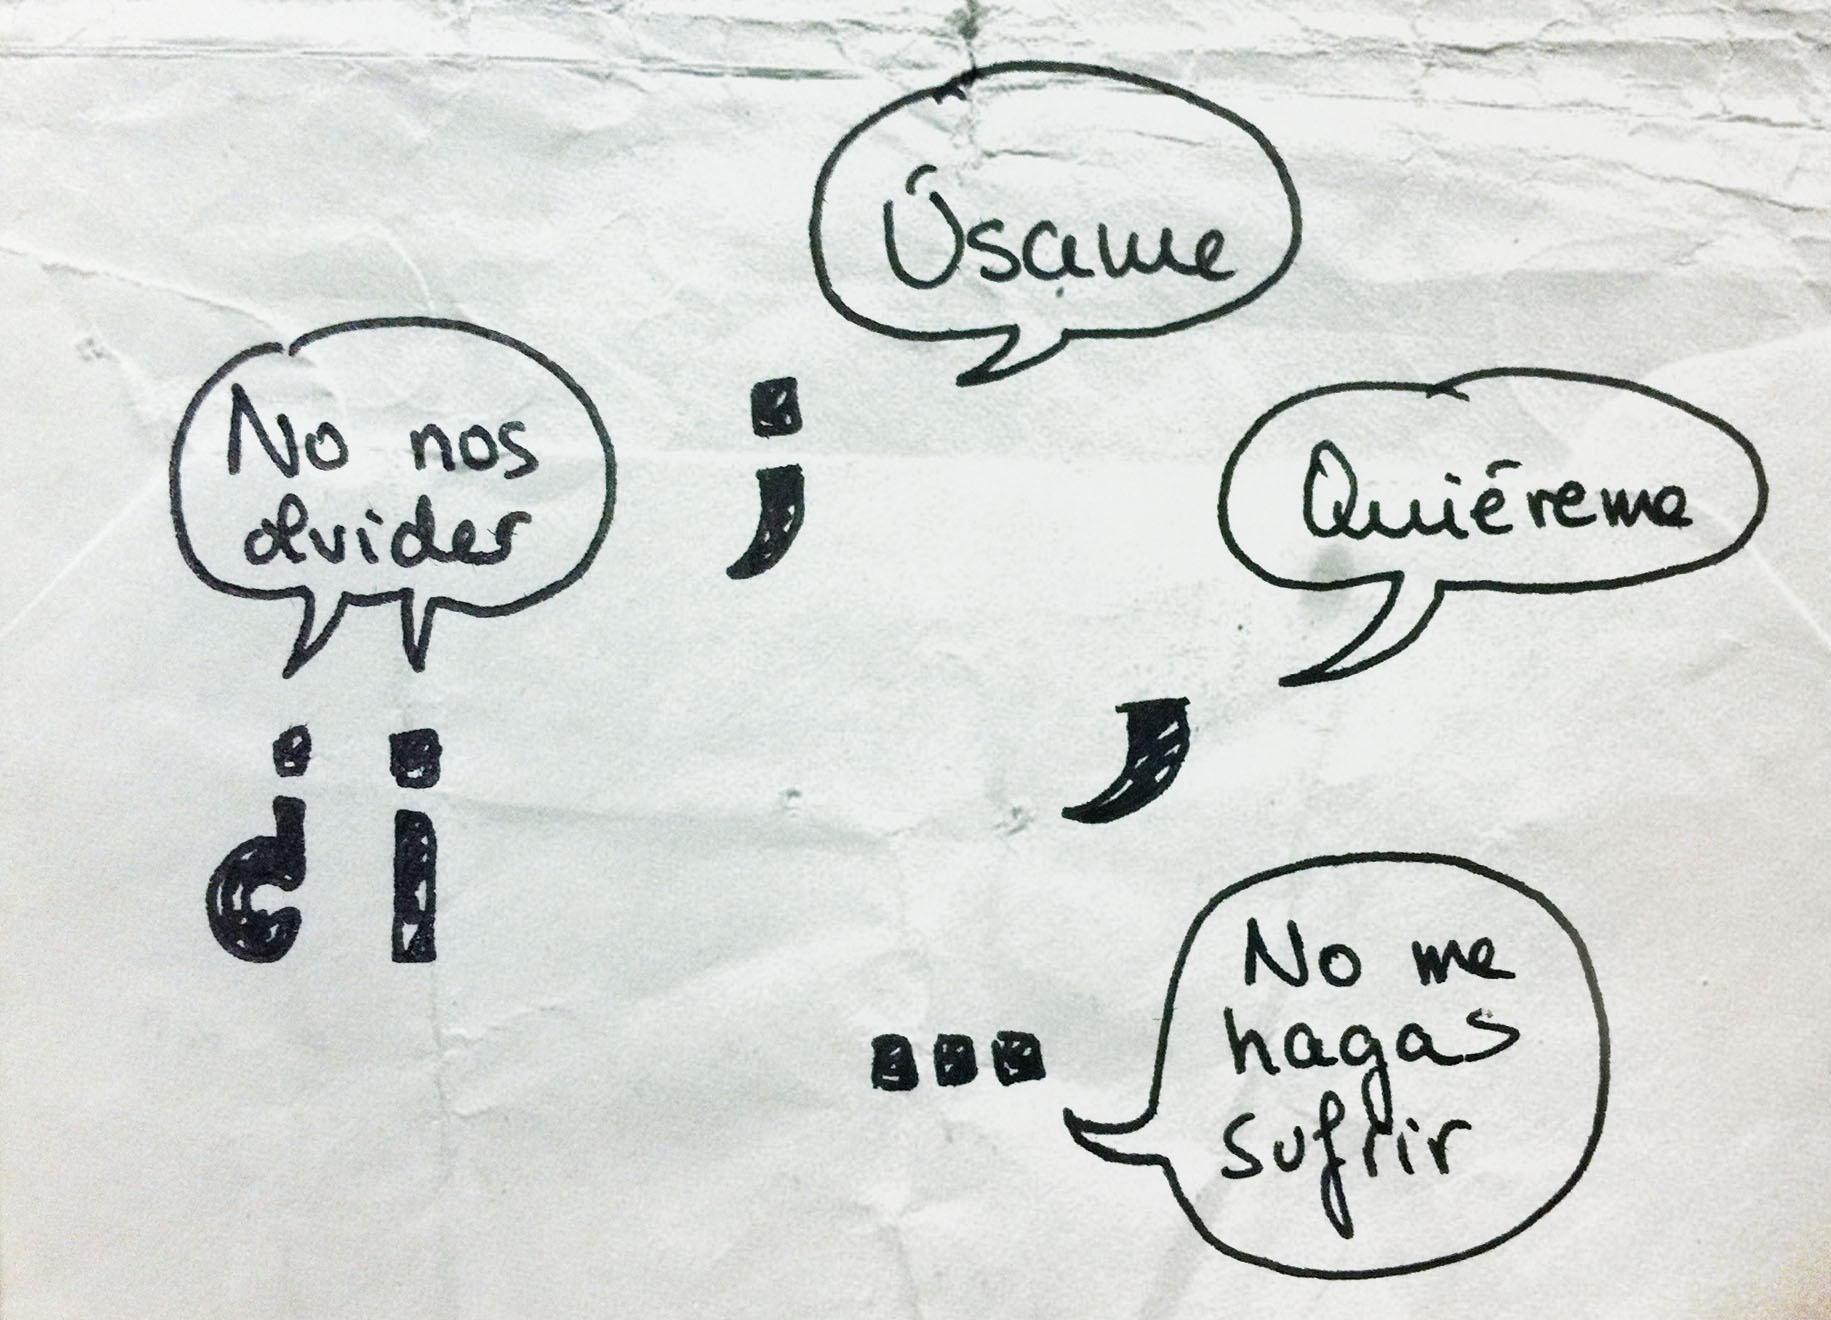 Úsame
No nos
olvides
;
Quiéreme
,
¿ ¡
No me
hagas
sufrir
...